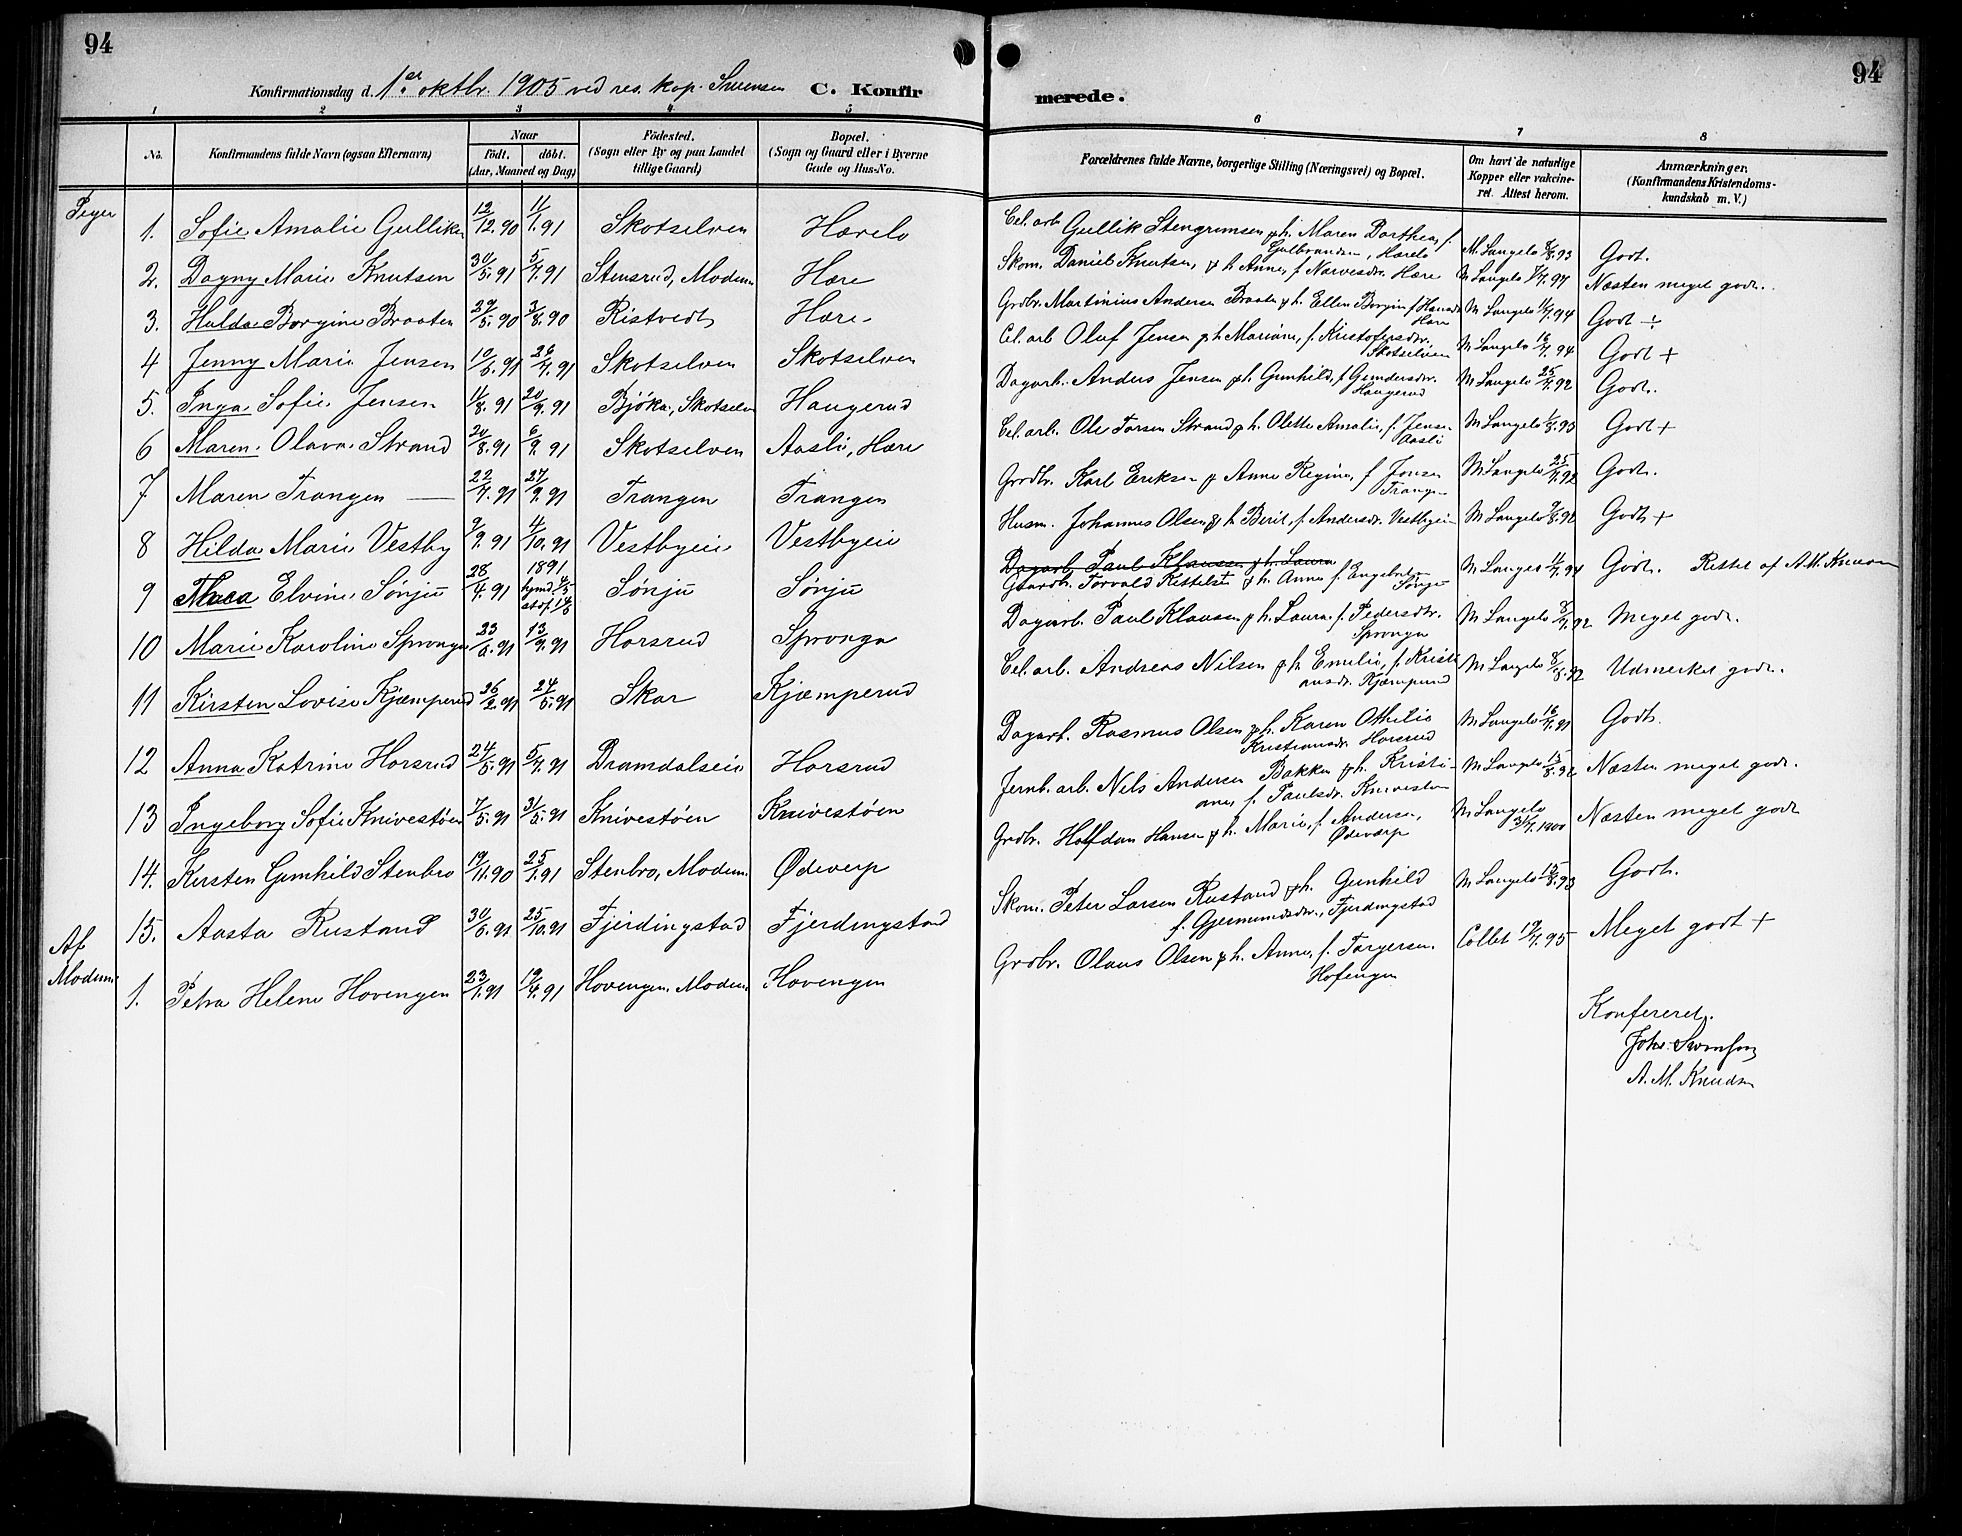 94
94
Konfirmationsdag d. 1ste oktbr. 1905 ved res. kap. Svensen C. Konfirmerede.
1 2 3 4 5 6 7 8
No.
Konfirmandens fulde Navn (ogsaa Efternavn)
Naar
født. døbt.
(Aar, Maaned og Dag)
Fødested.
(Sogn eller By og paa Landet
tillige Gaard)
Bopæl.
(Sogn og Gaard eller i Byerne
Gade og Hus-No.
Forældrenes fulde Navne, borgerlige Stilling (Næringsvei) og Bopæl.
Om havt de naturlige
Kopper eller vakcine-
ret. Attest herom.
Anmærkninger.
(Konfirmandens Kristendoms-
kundskab m. V.)
Piger
1. Sofie Amalie Gulliksen 12/12.90 11/1.91 Skotselven Hærelo Cel. arb. Gullik Stengrimsen & h. Maren Dorthea, f. Gulbrandsen, Hærelo M. Langelo 8/8.93 Godt.
2. Dagny Marie Knutsen 30/5.91 5/7.91 Stensrud, Modum Hære Skom. Daniel Knutsen, & h. Anne, f. Narvesdtr. Hære M Langelo 7/7.97 Næsten meget godt.
3. Hulda Borgine Braaten 29/5.90 3/8.90 Ristvedt Hære Grdbr. Martinius Andersen Braaten & h. Ellen Borgine f. Hansdtr Hære M Langelo 11/7.94 Godt ÷
4 Jenny Marie Jensen 10/6.91 26/7.91 Skotselven Skotselven Cel. arb Oluf Jensen & h Mariane, f. Kristofersdtr. Skotselven M Langelo 16/7.94 Godt +
5. Inga Sofie Jensen 11/8.91 20/9.91 Bjørka, Skotselv Haugerud Dagarb. Anders Jensen & h. Gunhild, f Gundersdtr. Haugerud M Langelo 25/7.92 Godt.
6 Maren Olava Strand 20/8.91 6/9.91 Skotselven Aasli, Hære Cel. arb. Ole Torsen Strand & h. Olette Amalie, f. Jensen Aasli M Langelo 1/8.93 Godt +
7 Maren Trangen 22/7.91 27/9.91 Trangen Trangen Grdbr. Karl Eriksen & Anne Regine, f Jonsen Trangen M Langelo 25/7.92 Godt.
8 Hilda Marie Vestby 9/9.91 4/10.91 Vestbyeie Vestbyeie Husm. Johannes Olsen & h Berit, f. Andersdtr. Vestbyeie M Langelo 9/8.92 Godt +
9 Thea Elvine Sønju 28/4.91 1891 hjmd 4/5 stadf. 14/6 Sønju Sønju Dagarb. Paul Klausen & h. Laura Gaardbr. Torvald Kittelsen & h. Anne f. Engebretsen Sønju M Langelo 11/7.94 Godt. Rettet af A. M. Knudsen
10 Marie Karoline Spronga 23/6.91 13/9.91 Horsrud Spronga Dagarb. Paul Klausen & h. Laura f. Pedersdtr. Spronga M Langelo 3/7.92 Meget godt.
11 Kirsten Lovise Kjæmperud 26/2.91 24/5.91 Skar Kjæmperud Cel. arb. Andreas Nilsen & h Emilie, f. Kristiansdtr. Kjæmperud M Langelo 8/8.92 Udmerket godt.
12 Anna Katrine Horsrud 24/5.91 5/7.91 Dramdalseie Horsrud Dagarb. Rasmus Olsen & h. Karen Othilie Kristiansdtr Horsrud M Langelo 16/7.91 Godt.
13 Ingeborg Sofie Knivestøen 7/5.91 31/5.91 Knivestøen Knivestøen Jernb. arb. Nils Andersen Bakken & h. Kristiane, f. Paulsdtr. Knivestøen M Langelo 15/8.92 Næsten meget godt.
14. Kirsten Gunhild Stenbro 19/11.90 25/1.91 Stenbro, Modum Ødeverp Grdbr. Halfdan Hansen & h. Marie, f. Andersen, Ødeverp M Langelo 31/7.1900 Næsten meget godt
15. Aasta Rustand 30/6.91 25/10.91 Fjerdingstad Fjerdingstad Skom. Peter Larsen Rustand & h. Gunhild f. Gjermundsdtr., Fjerdingstad M Langelo 15/8.93 Godt.
Af
Modum
1. Petra Helene Hovengen 23/1.91 19/4.91 Hovengen, Modum Hovengen Grdbr. Olaus Olsen & h. Anne, f. Torgersen. Hofengen Collet 19/7.95 Meget godt +
Konfereret.
Johs. Svensen
A. M. Knudsen